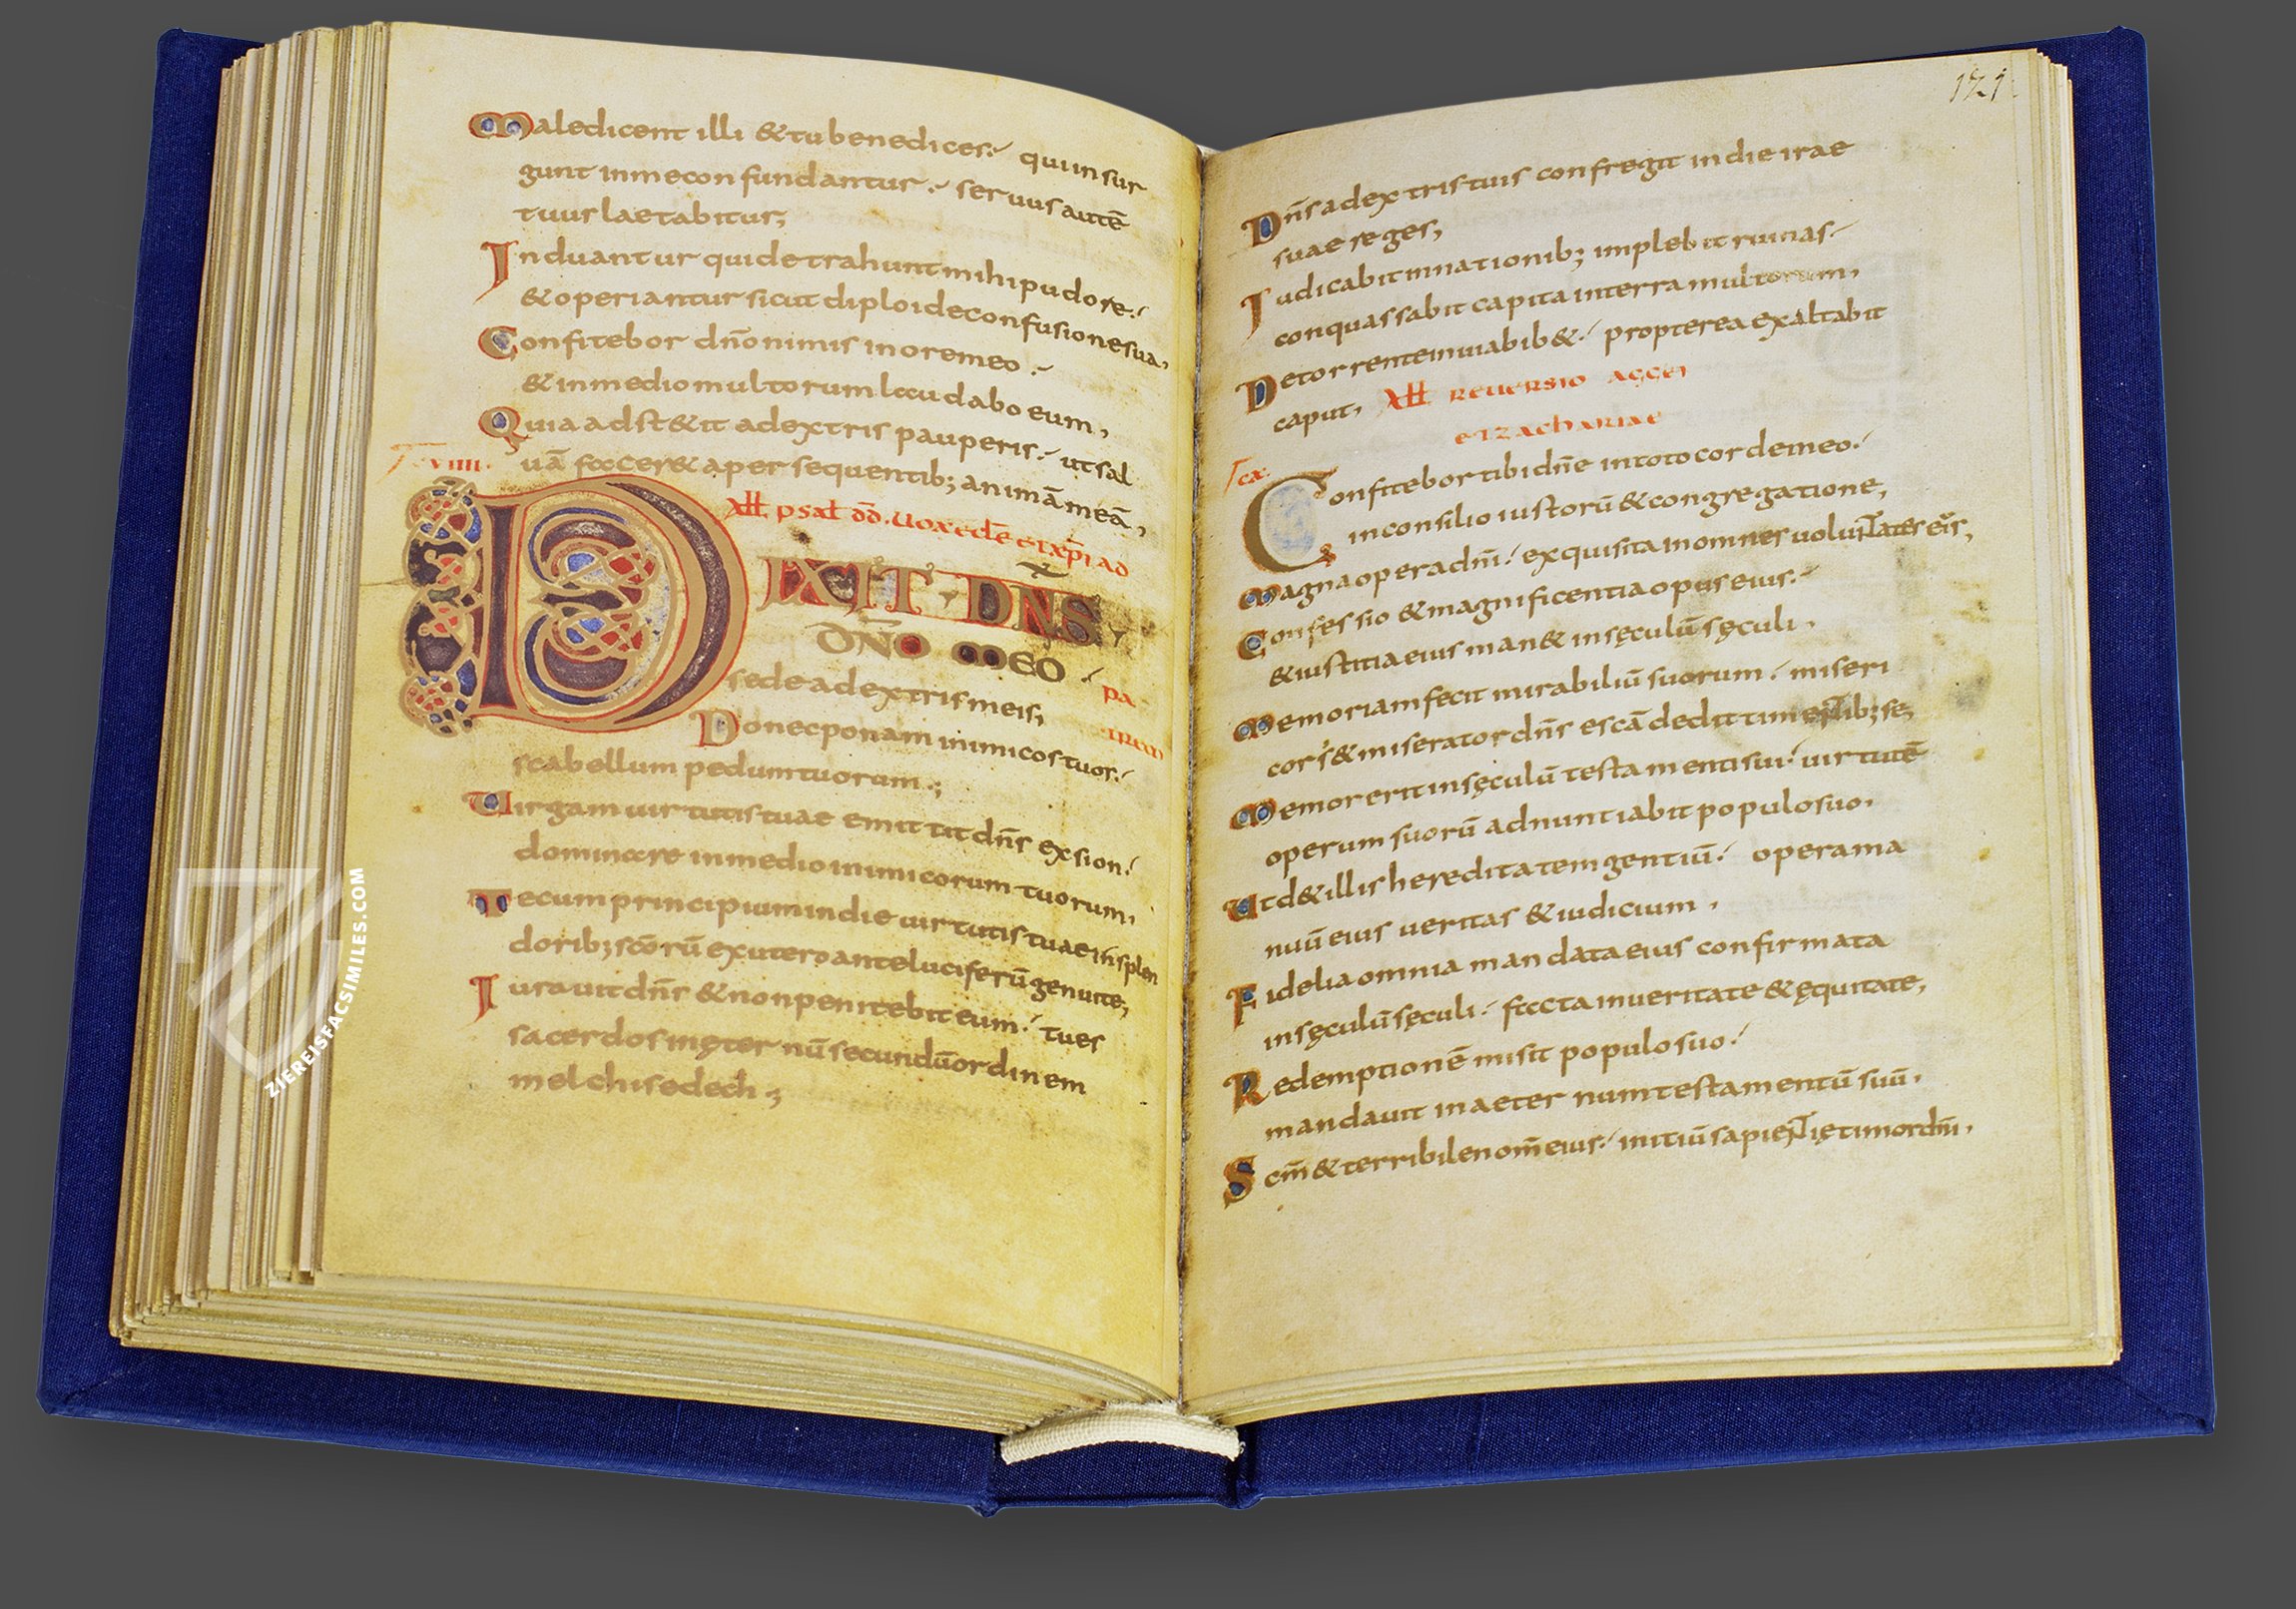 Maledicent illi & tu benedices. qui insur
gunt in me confundantur. seruus autē
tuus laetabitur;
Induantur qui detrahunt mihi pudore.
& operiantur sicut diploide confusione sua,
Confitebor dn̄o nimis in ore meo.
& in medio multorum laudabo eum,
Quia adst&it a dextris pauperis. ut sal
uā facer& a persequentib; animā meā,
CVIIII.
XLII psal dd. uox ecłe et xp̄i ad
DIXIT DN̄S
DN̄O MEO
pa
sede a dextris meis,
trem
Donec ponam inimicos tuos.
scabellum pedum tuorum;
Uirgam uirtutis tuae emittit dn̄s ex sion.
dominare in medio inimicorum tuorum,
Tecum principium in die uirtutis tuae in splen
dorib; sc̄orū ex utero ante luciferū genui te,
Iurauit dn̄s & non penitebit eum. tu es
sacerdos in ęternū secundū ordinem
melchisedech;
121
Dn̄s a dextris tuis confregit in die irae
suae reges,
Iudicabit in nationib; implebit ruinas.
conquassabit capita in terra multorum,
De torrente in uia bib&. propterea exaltabit
caput, XLII REUERSIO AGGEI
ET ZACHARIAE
CX
Confitebor tibi dn̄e in toto corde meo.
in consilio iustorū & congregatione,
Magna opera dn̄i. exquisita in omnes uoluntates eiꝰs,
Confessio & magnificentia opus eius.
& iustitia eius man& in sęculū sęculi,
Memoriam fecit mirabiliū suorum. miseri
cors & miserator dn̄s escā dedit timentib; se,
Memor erit in sęculū testamenti sui. uirtutē
operum suorū adnuntiabit populo suo,
Ut d& illis hereditatem gentiū. opera ma
nuū eius ueritas & iudicium,
Fidelia omnia mandata eius confirmata
in sęculū sęculi. facta in ueritate & ęquitate,
Redemptionē misit populo suo.
mandauit in aeternum testamentū suū,
Sc̄m & terribile nom̄ eius. initiū sapientię timor dn̄i,
ZIEREISFACSIMILES.COM